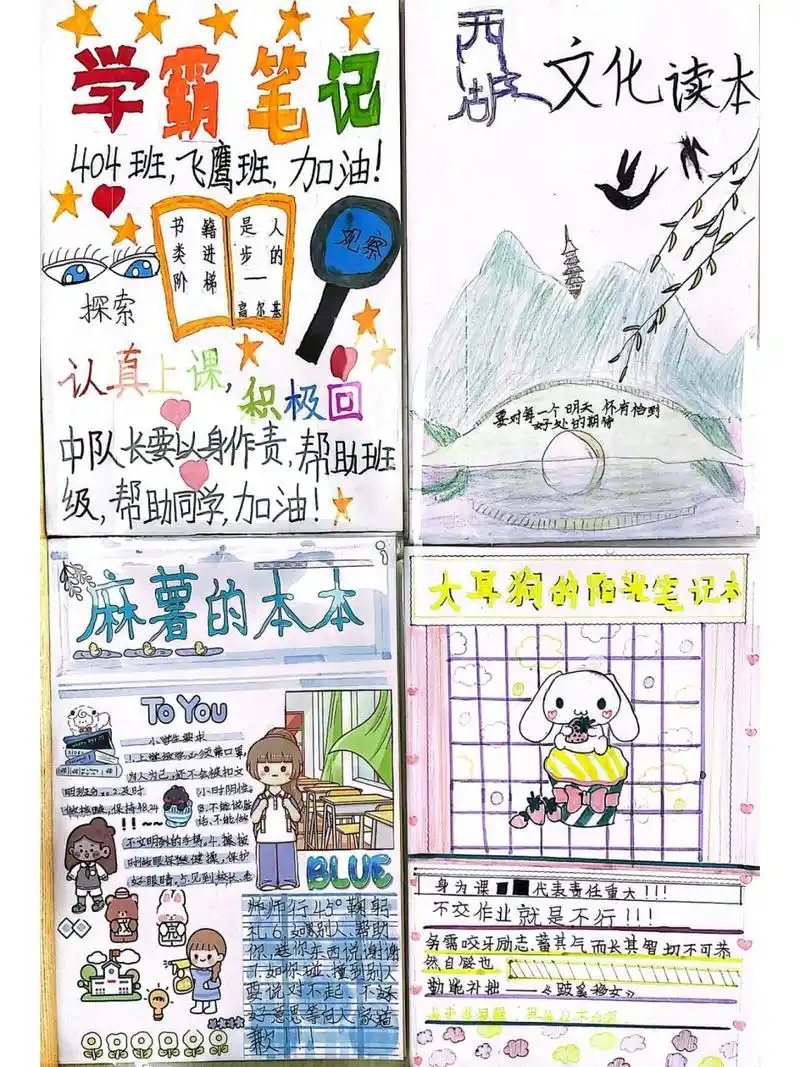 学霸笔记
404班,飞鹰班,加油!
书籍是人
类进步的
阶梯——
高尔基
观察
探索
认真上课,积极回
中队长要以身作责,帮助班
级,帮助同学,加油!
西湖
文化读本
要对每一个明天 怀有恰到
好处的期待
麻薯的本本
TO YOU
小学生要求
1.上学放学必须带口罩
为人为己,还不会被扣文
明班分。2.及时
做核酸,保持48.24
小时阴性
3.不能说脏
话,不能做
不文明到的手势。4.
时做眼保健操,保护
好眼睛。5.见到校长、老
BLUE
师师行45°鞠躬
礼 6.如果别人帮助
你,送你东西说谢谢
7.如你碰、撞到别人
要说对不起、不好
意思等向人家道
歉!!!
大耳狗的阳光笔记本
身为课 代表责任重大!!!
不交作业就是不行!!!
务需咬牙励志,蓄其气而长其智,切不可恭
然自馁也
勤能补拙——《跋奚移女》